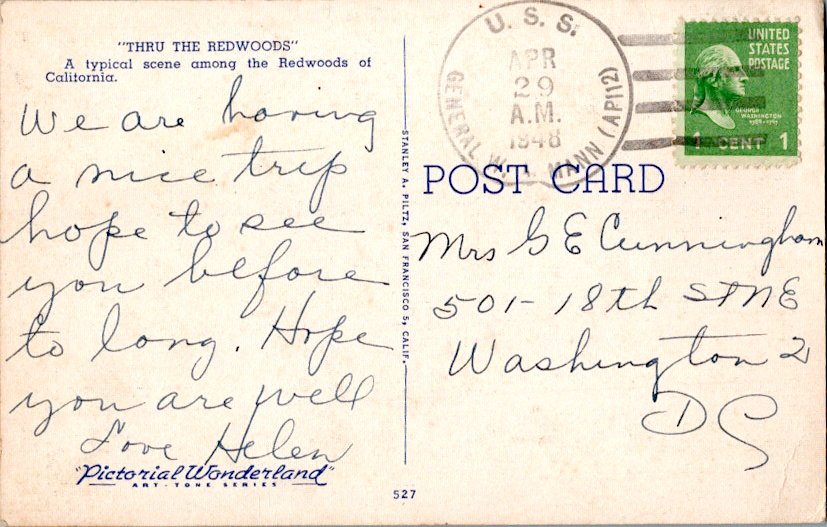 "THRU THE REDWOODS"
A typical scene among the Redwoods of
California.
We are having
a nice trip
hope to see
you before
to long. Hope
you are well
Love Helen
"Pictorial Wonderland"
ART-TONE SERIES
STANLEY A. PILTZ, SAN FRANCISCO 5, CALIF.
527
U. S. S.
GENERAL W. A. MANN (AP112)
APR
29
A.M.
1948
UNITED
STATES
POSTAGE
GEORGE
WASHINGTON
1789-1797
1 CENT 1
POST CARD
Mrs G E Cunningham
501-18th St NE
Washington 2
D C